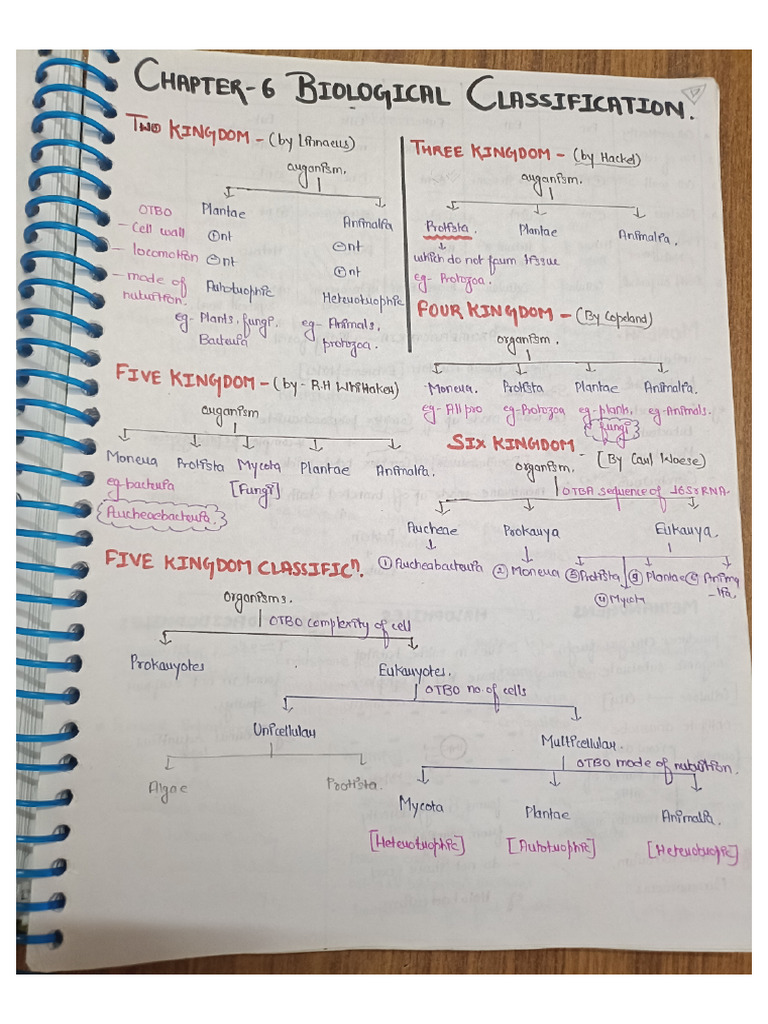 CHAPTER-6 BIOLOGICAL CLASSIFICATION.
TWO KINGDOM - (by Linnaeus)
organism.
OTBO Plantae Animalia
- Cell wall ⊕nt ⊖nt
- locomotion ⊖nt ⊕nt
- mode of nutrition. Autotrophic Heterotrophic
eg- Plants, fungi, Bacteria
eg- Animals, protozoa.
THREE KINGDOM - (by Hackel)
organism.
Protista. Plantae Animalia.
which do not form tissue
eg- Protozoa.
FOUR KINGDOM - (By Copeland)
organism.
Monera. Protista Plantae Animalia.
eg- All pro eg- Protozoa eg- plants, eg- Animals.
fungi
FIVE KINGDOM - (by - R.H Whittaker)
organism
Monera Protista Mycota Plantae Animalia.
eg bacteria [Fungi]
Archeaebacteria.
SIX KINGDOM - [By Carl Woese)
organism.
OTBA sequence of 16S rRNA.
Archeae Prokarya Eukarya.
① Archeabacteria ② Monera ③ Protista ④ Mycota ⑤ Plantae ⑥ Animalia.
FIVE KINGDOM CLASSIFICⁿ.
organisms.
OTBO complexity of cell
Prokaryotes Eukaryotes.
OTBO no. of cells
Unicellular Multicellular.
OTBO mode of nutrition.
Algae Protista.
Mycota Plantae Animalia.
[Heterotrophic] [Autotrophic] [Heterotropic]